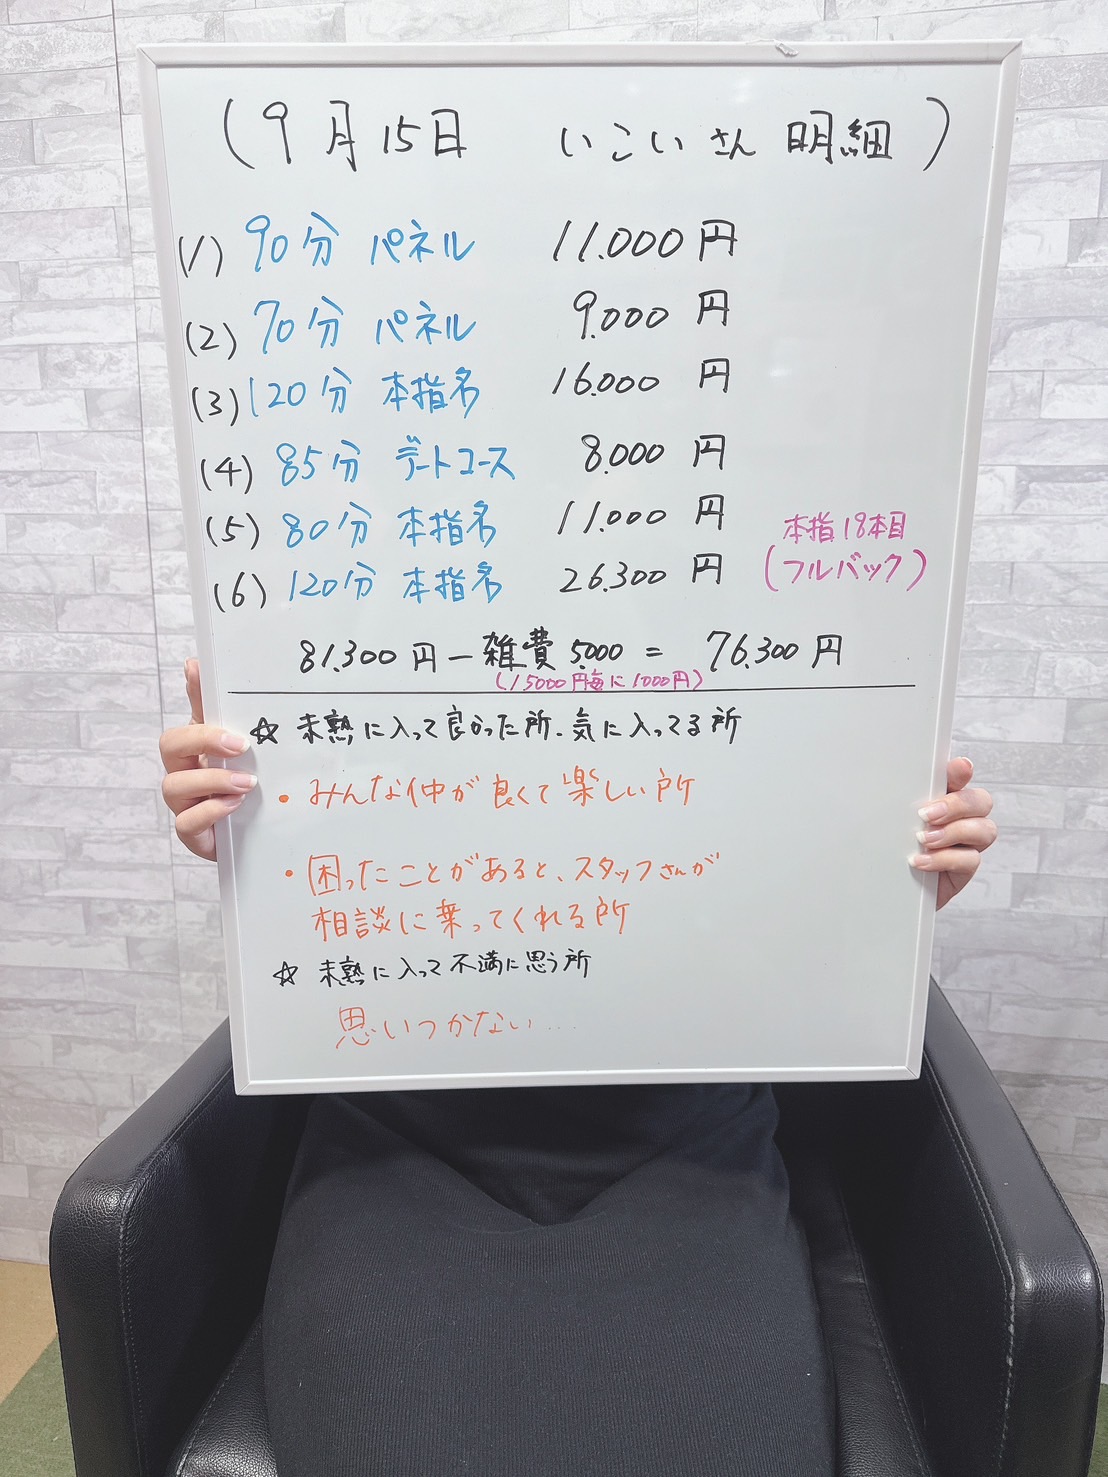 (9月15日 いこいさん 明細)
(1) 90分 パネル 11.000円
(2) 70分 パネル 9.000円
(3) 120分 本指名 16.000円
(4) 85分 デートコース 8.000円
(5) 80分 本指名 11.000円
(6) 120分 本指名 26.300円
本指18本目
(フルバック)
81.300円-雑費5.000=76.300円
(15000円毎に1000円)
☆ 未熟に入って良かった所、気に入ってる所
・みんな仲が良くて楽しい所
・困ったことがあると、スタッフさんが
相談に乗ってくれる所
☆ 未熟に入って不満に思う所
思いつかない....